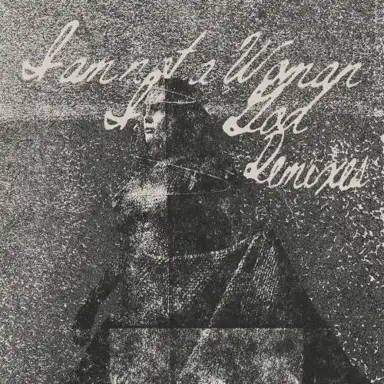 I am not a Woman
I God
Remixes